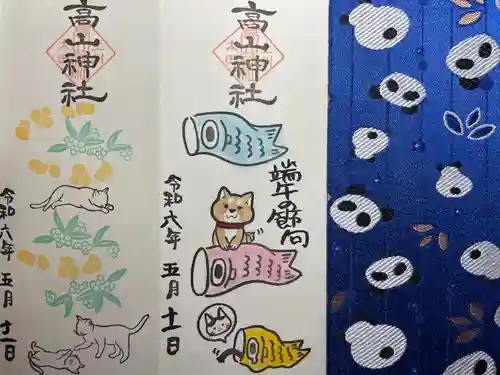 高山神社
端午の節句
令和六年 五月 十一日
高山神社
令和六年 五月 十一日